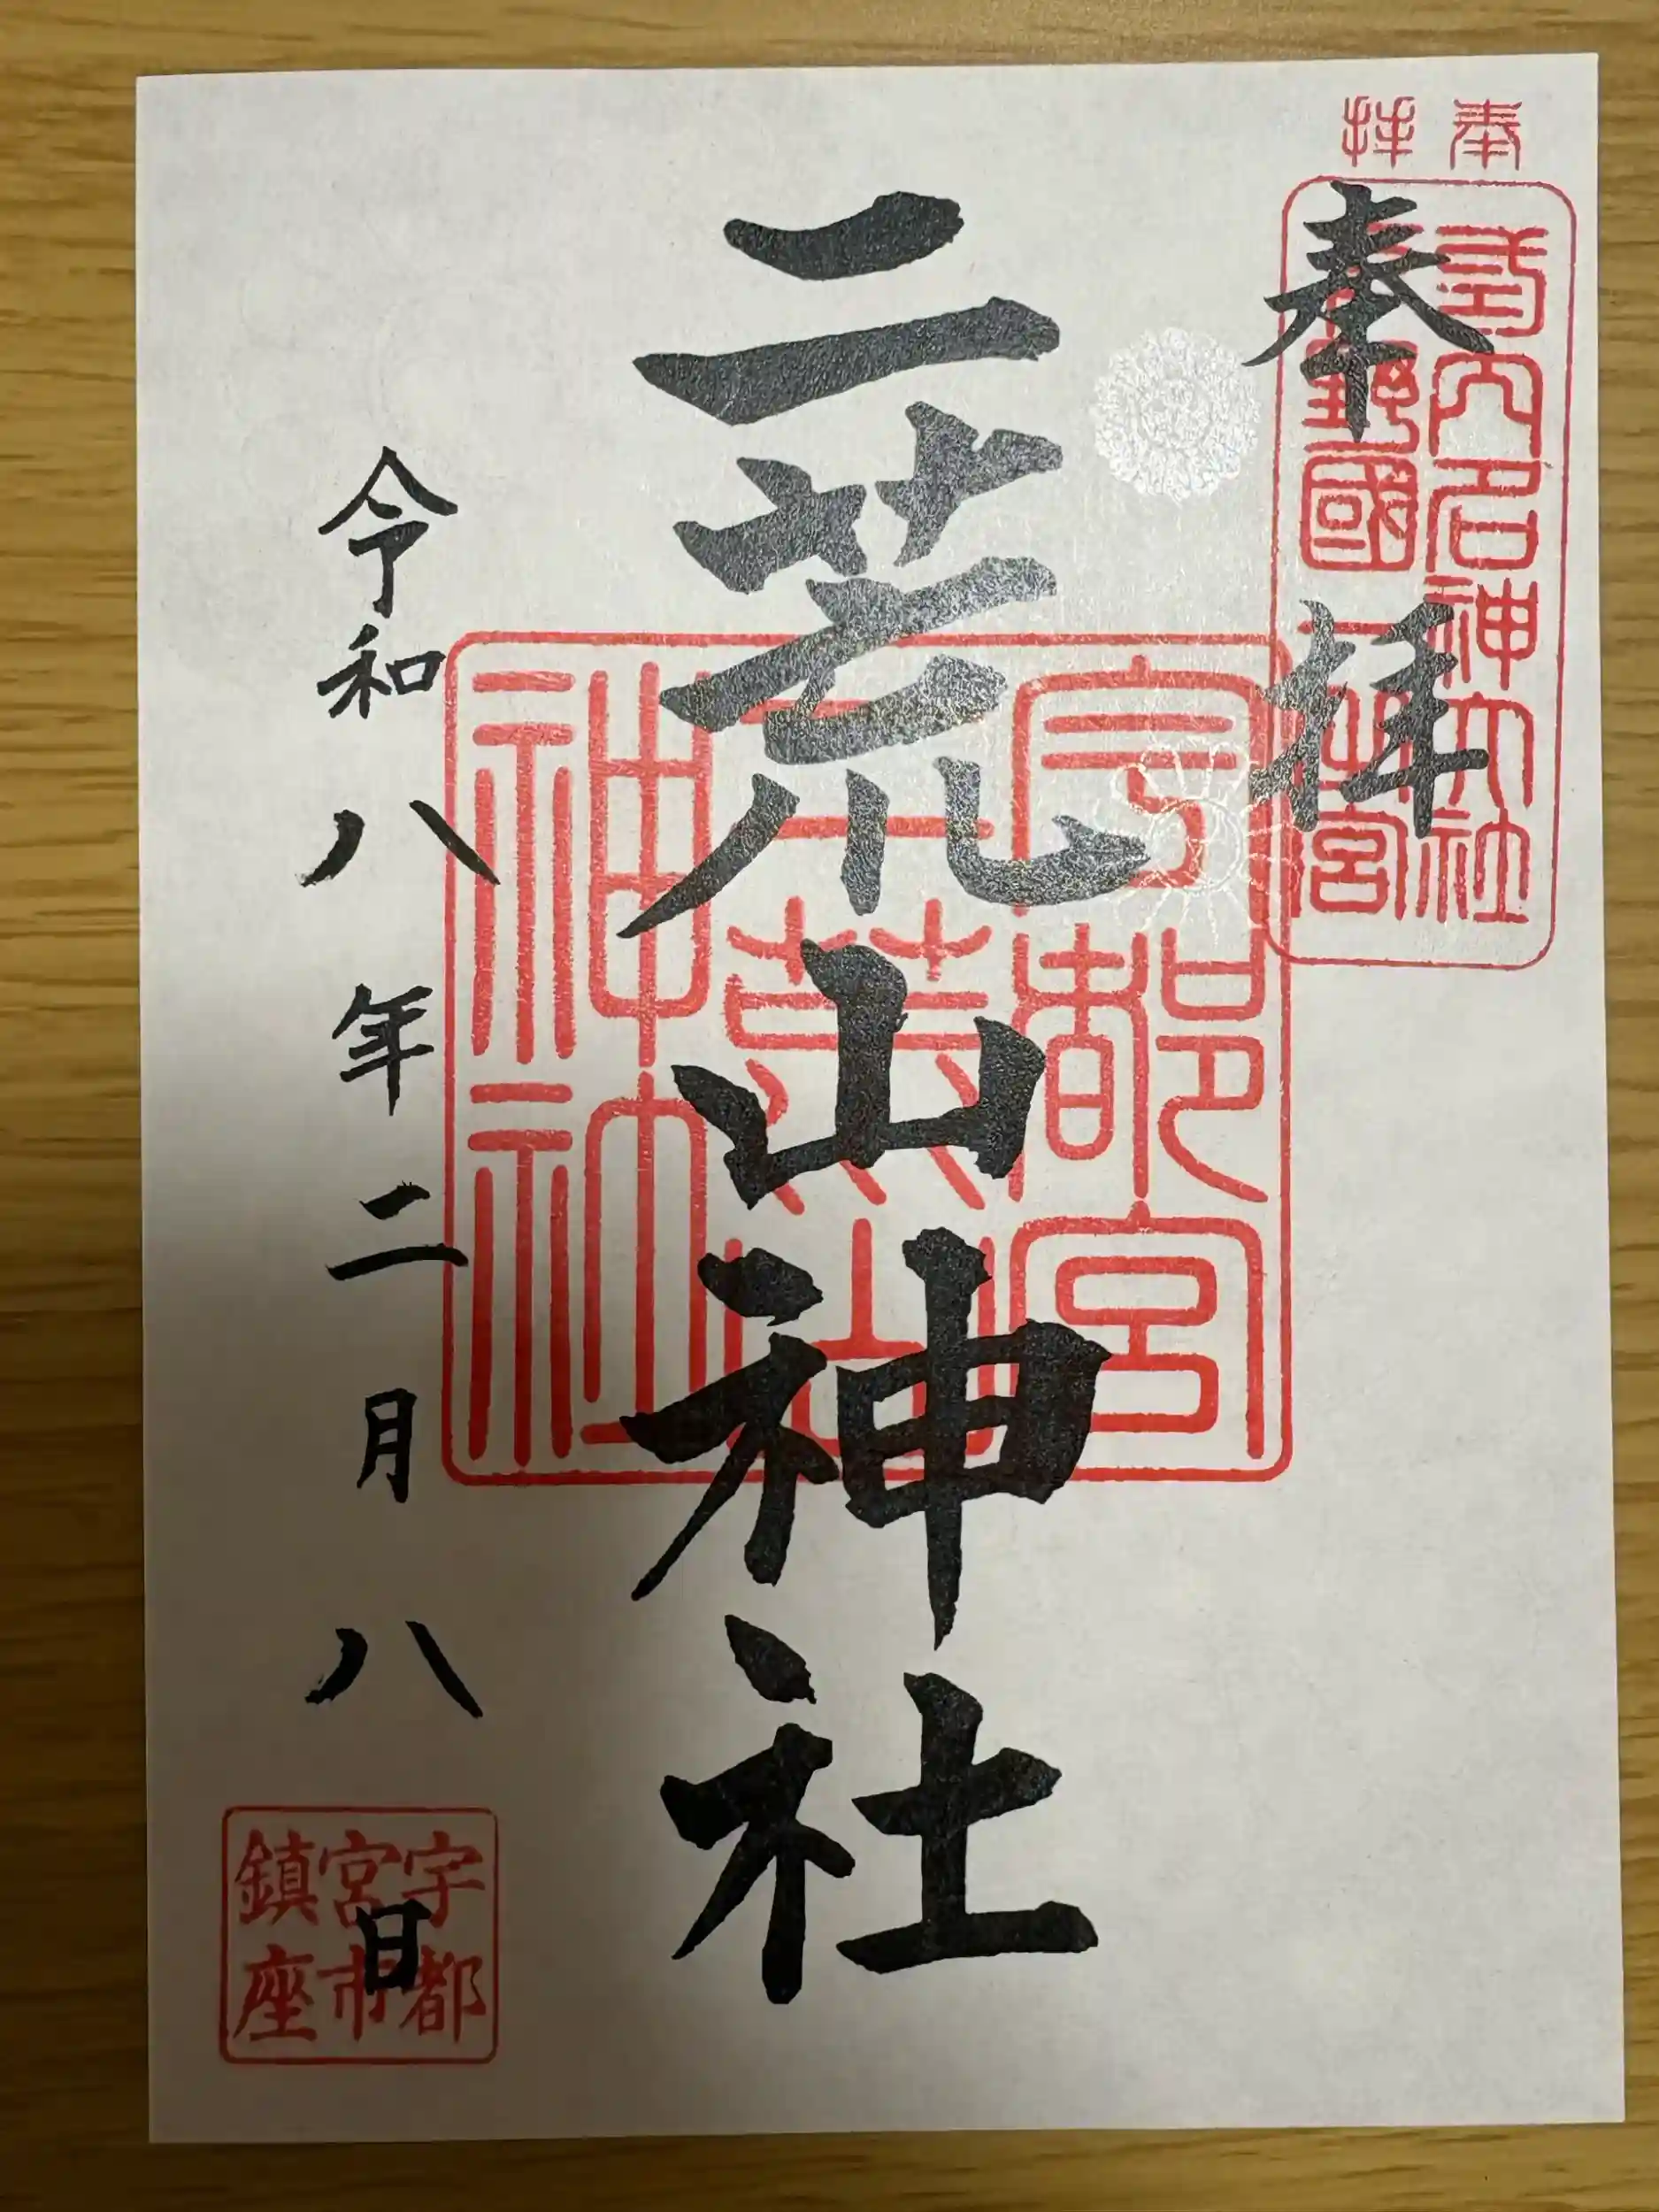 奉拝
式内名神大社
下野國一之宮
奉拝
二荒山神社
宇都宮
二荒山
神社
令和八年二月八日
宇都
宮市
鎮座